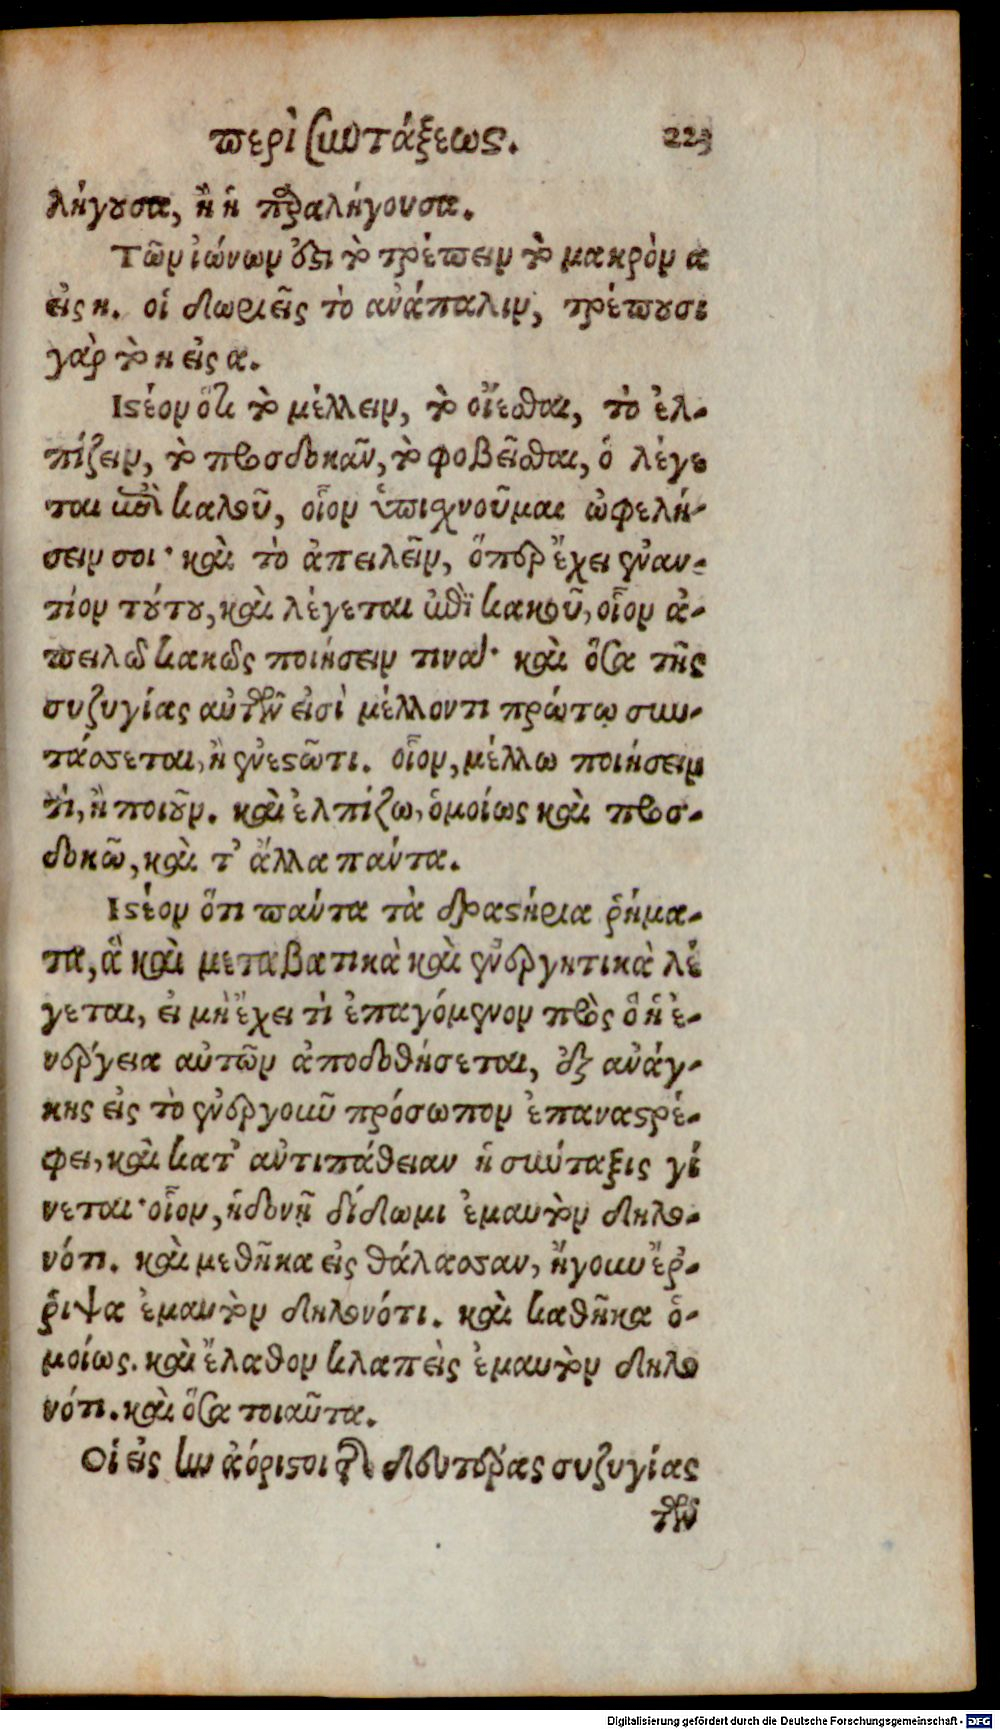 περὶ συντάξεως. 223
λήγουσα, ἢ ἡ παραλήγουσα.
Τῶν ἰώνων ἐστὶ τὸ τρέπειν τὸ μακρὸν α
εἰς η. οἱ δωριεῖς τὸ ἀνάπαλιν, τρέπουσι
γὰρ τὸ η εἰς α.
Ιστέον ὅτι τὸ μέλλειν, τὸ οἴεσθαι, τὸ ἐλ-
πίζειν, τὸ προσδοκᾶν, τὸ φοβεῖσθαι, ὁ λέγε
ται ἐπὶ καλοῦ, οἷον ὑπισχνοῦμαι ὠφελή-
σειν σοι· καὶ τὸ ἀπειλεῖν, ὅπερ ἔχει ἐναν-
τίον τούτου, καὶ λέγεται ἐπὶ κακοῦ, οἷον ἀ-
πειλῶ κακῶς ποιήσειν τινα· καὶ ὅσα τῆς
συζυγίας αὐτῶν εἰσὶ μέλλοντι πρώτῳ συν-
τάσσεται, ἢ ἐνεστῶτι. οἷον, μέλλω ποιήσειν
τὶ, ἢ ποιοῦν. καὶ ἐλπίζω, ὁμοίως καὶ προσ-
δοκῶ, καὶ τ' ἄλλα πάντα.
Ιστέον ὅτι πάντα τὰ δραστήρια ῥήμα-
τα, ἃ καὶ μεταβατικὰ καὶ ἐνεργητικὰ λέ
γεται, εἰ μὴ ἔχει τὶ ἐπαγόμενον πρὸς ὃ ἡ ἐ-
νέργεια αὐτῶν ἀποδοθήσεται, ἐξ ἀνάγ-
κης εἰς τὸ ἐνεργοῦν πρόσωπον ἐπαναστρέ-
φει, καὶ κατ' ἀντιπάθειαν ἡ σύνταξις γί
νεται· οἷον, ἡδονῇ δίδωμι ἐμαυτὸν δηλο-
νότι. καὶ μεθῆκα εἰς θάλασσαν, ἤγουν ἔρ-
ῥιψα ἐμαυτὸν δηλονότι. καὶ καθῆκα ὁ-
μοίως. καὶ ἔλαθον κλαπεὶς ἐμαυτὸν δηλο
νότι. καὶ ὅσα τοιαῦτα.
Οἱ εἰς ην ἀόριστοι τῆς δευτέρας συζυγίας
τῶν
Digitalisierung gefördert durch die Deutsche Forschungsgemeinschaft - DFG